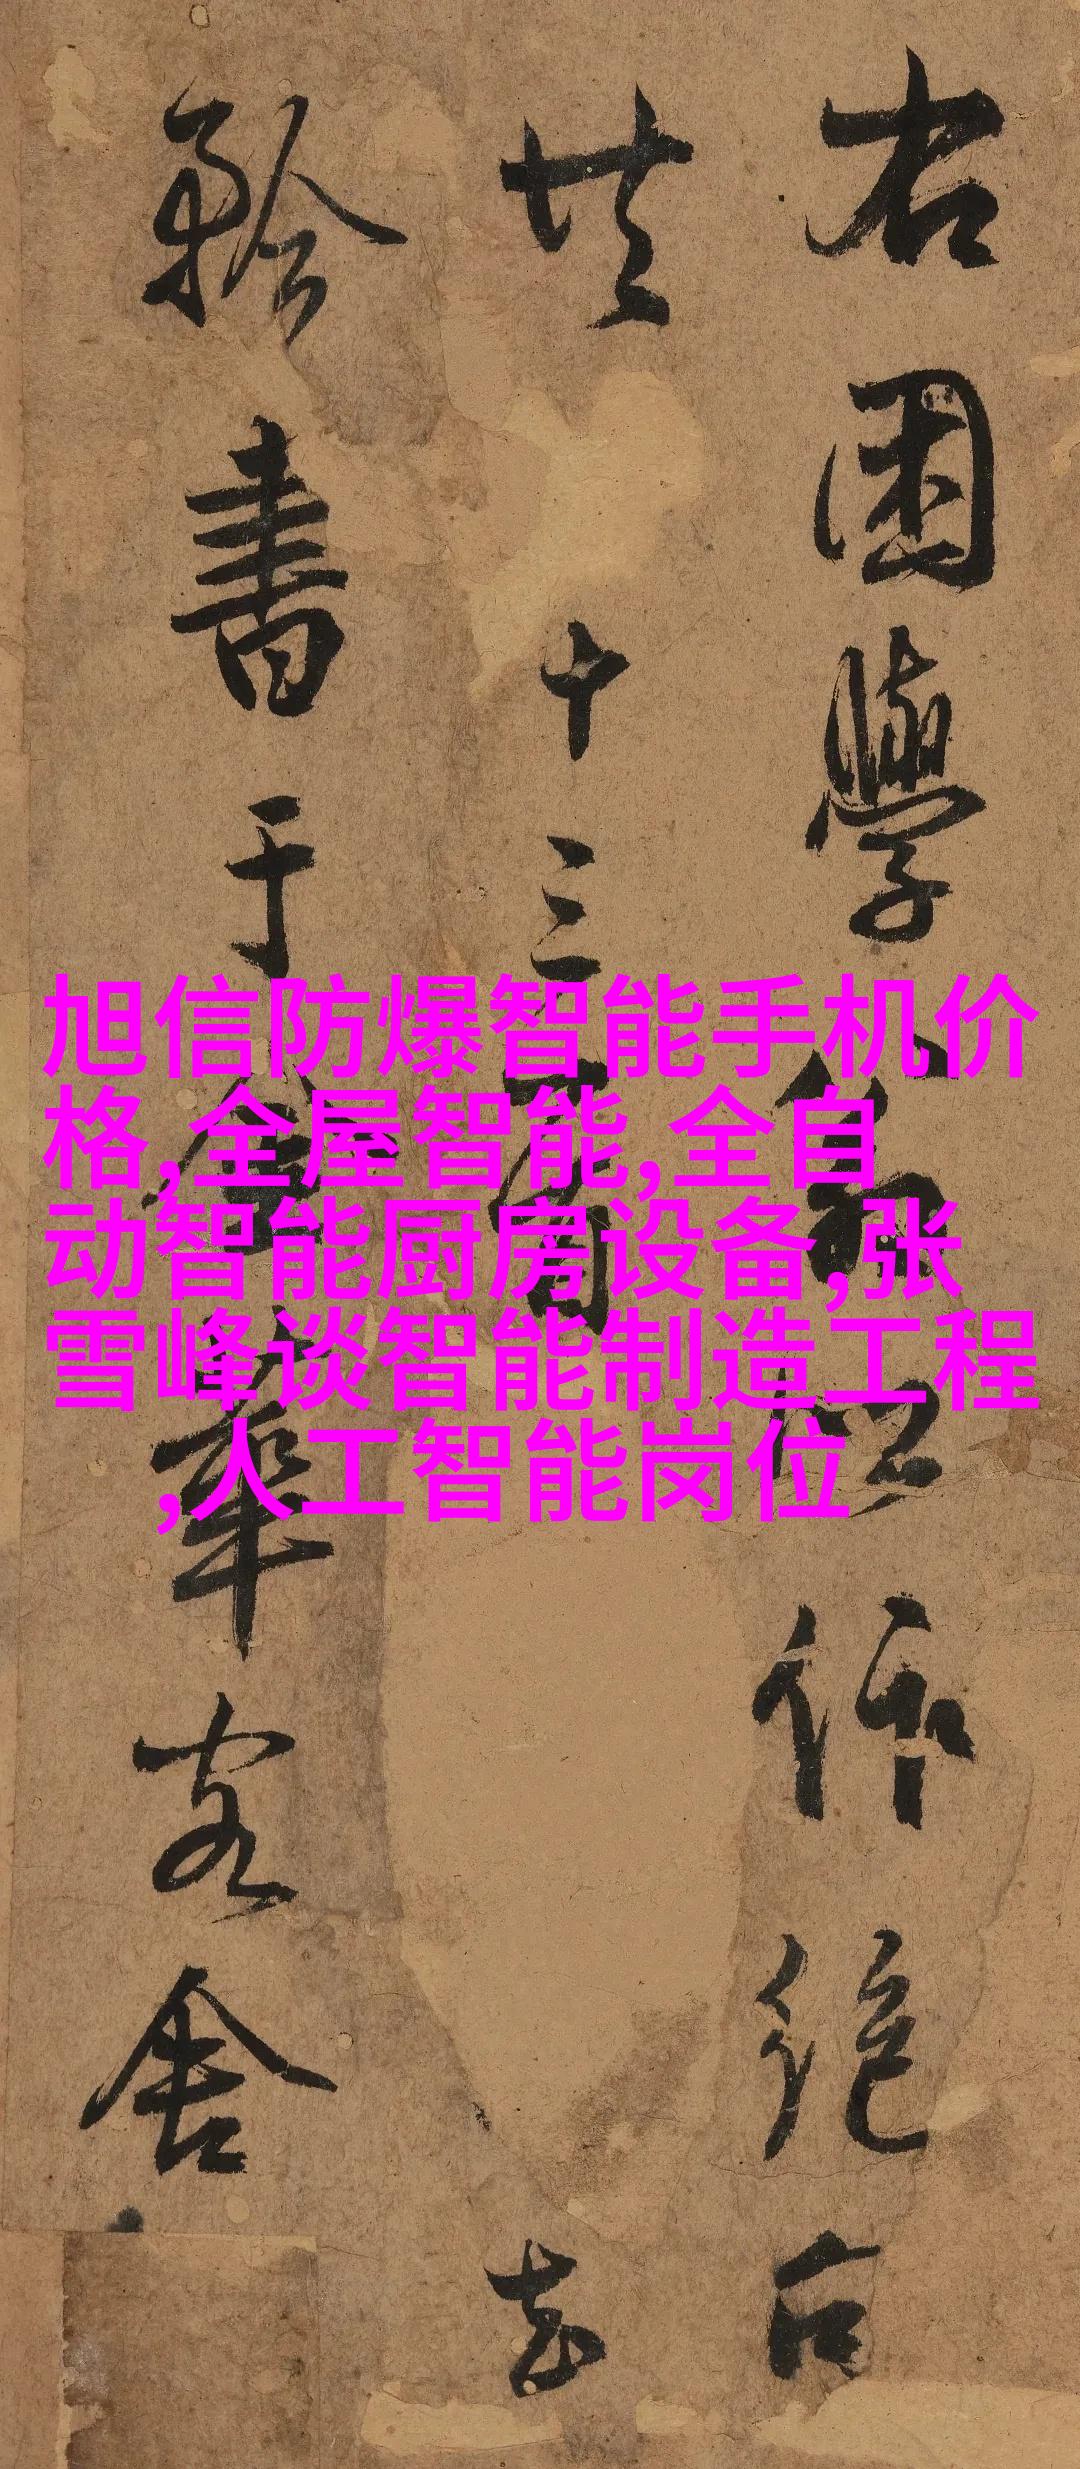 右困學作絶句
共十三首去
矜書于金華客舍
旭信防爆智能手机价
格,全屋智能,全自
动智能厨房设备,张
雪峰谈智能制造工程
,人工智能岗位